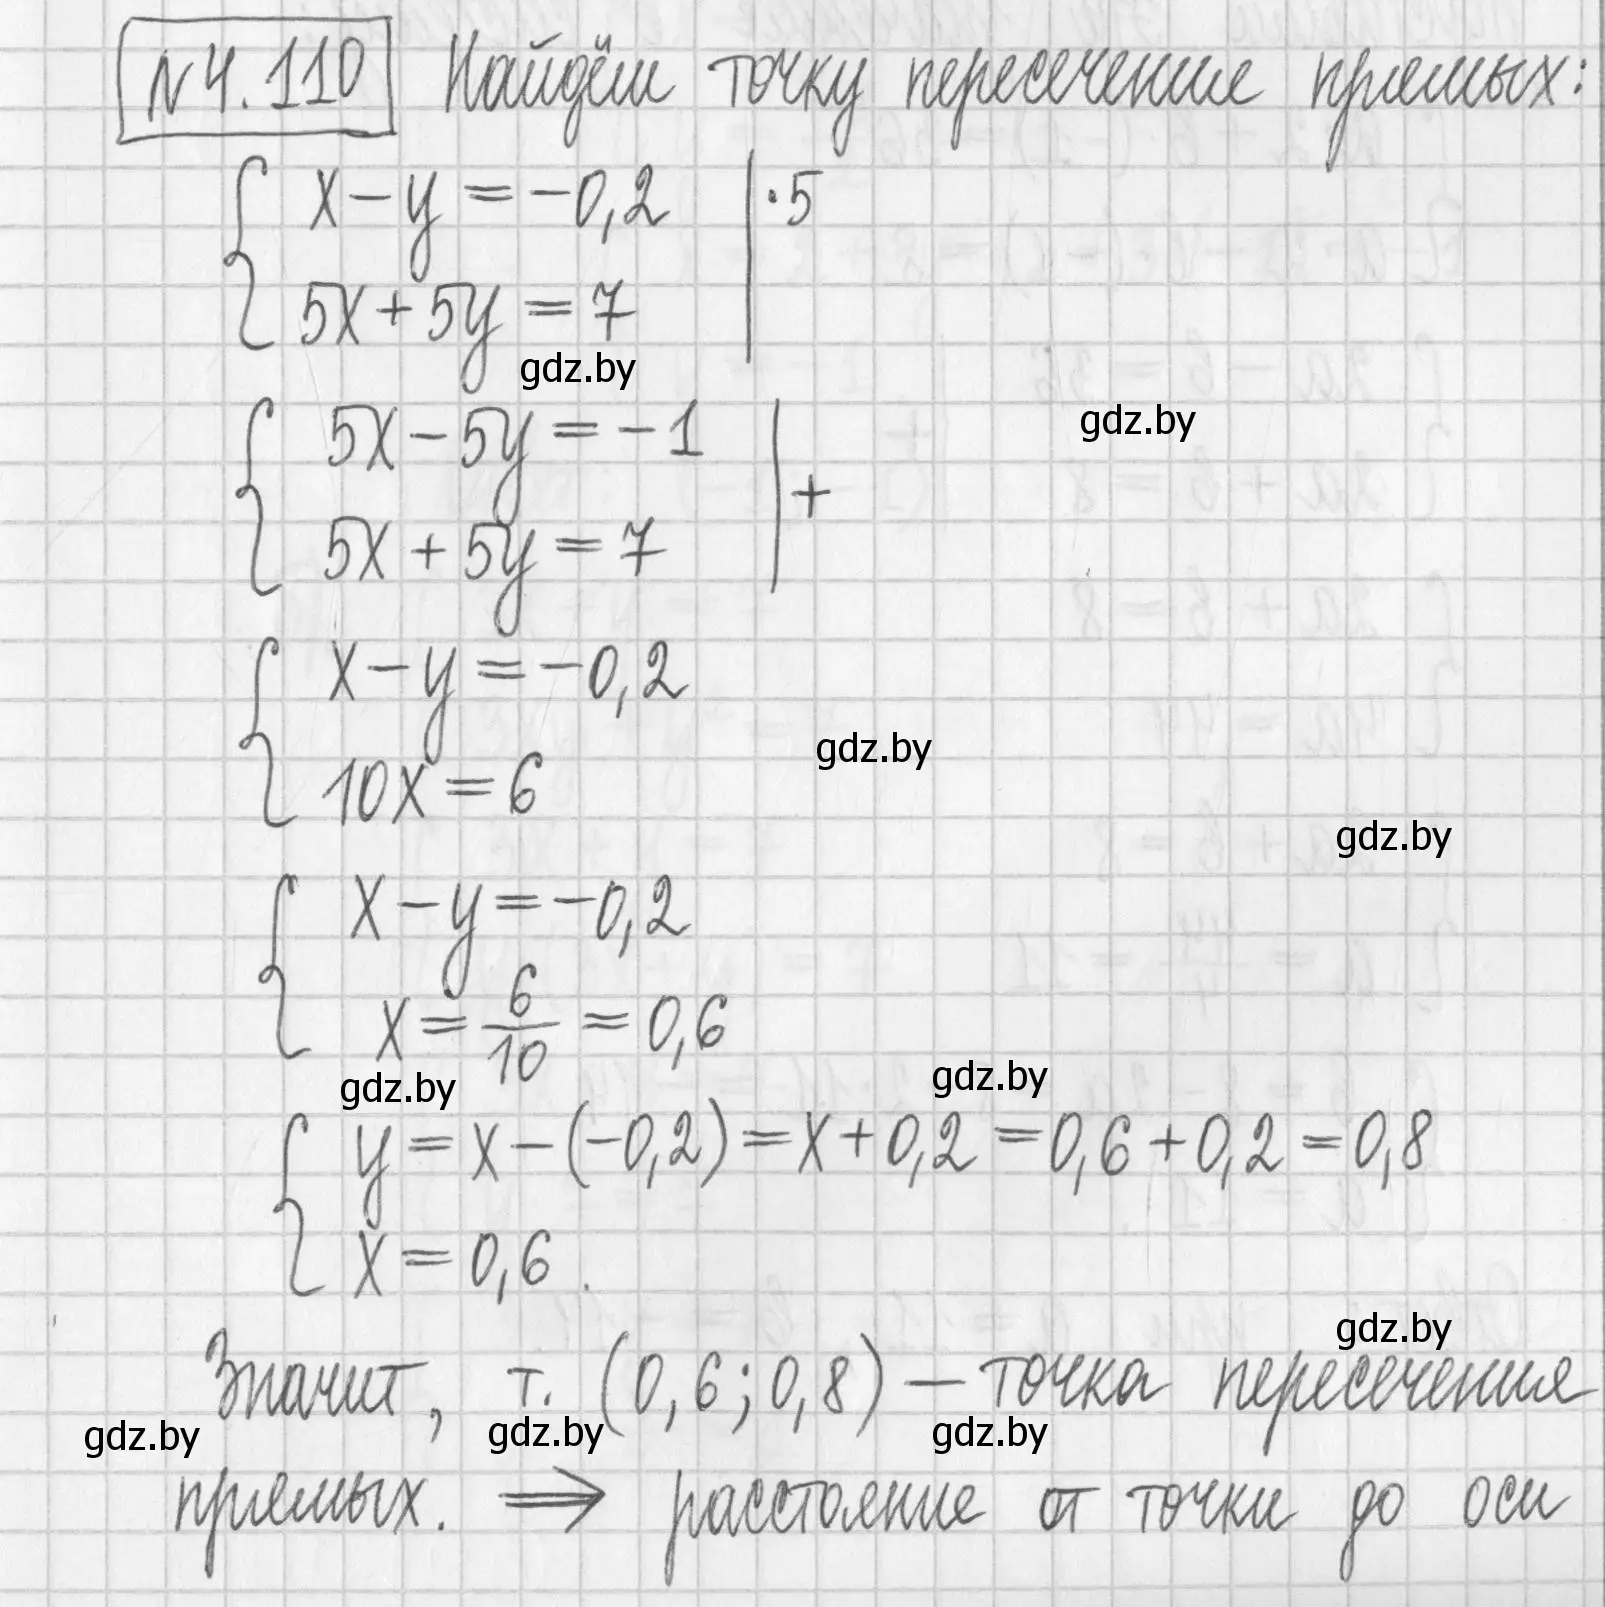 №4.110 Найдём точку пересечение прямых:
x-y=-0,2 |·5
5x+5y=7
gdz.by
gdz.by
5x-5y=-1 |+
5x+5y=7
x-y=-0,2
gdz.by
10x=6
gdz.by
x-y=-0,2
x=6/10=0,6
gdz.by
gdz.by
y=x-(-0,2)=x+0,2=0,6+0,2=0,8
x=0,6.
gdz.by
Значит, т. (0,6;0,8) – точка пересечения
gdz.by
gdz.by
gdz.by
прямых. ⇒ расстояние от точки до оси